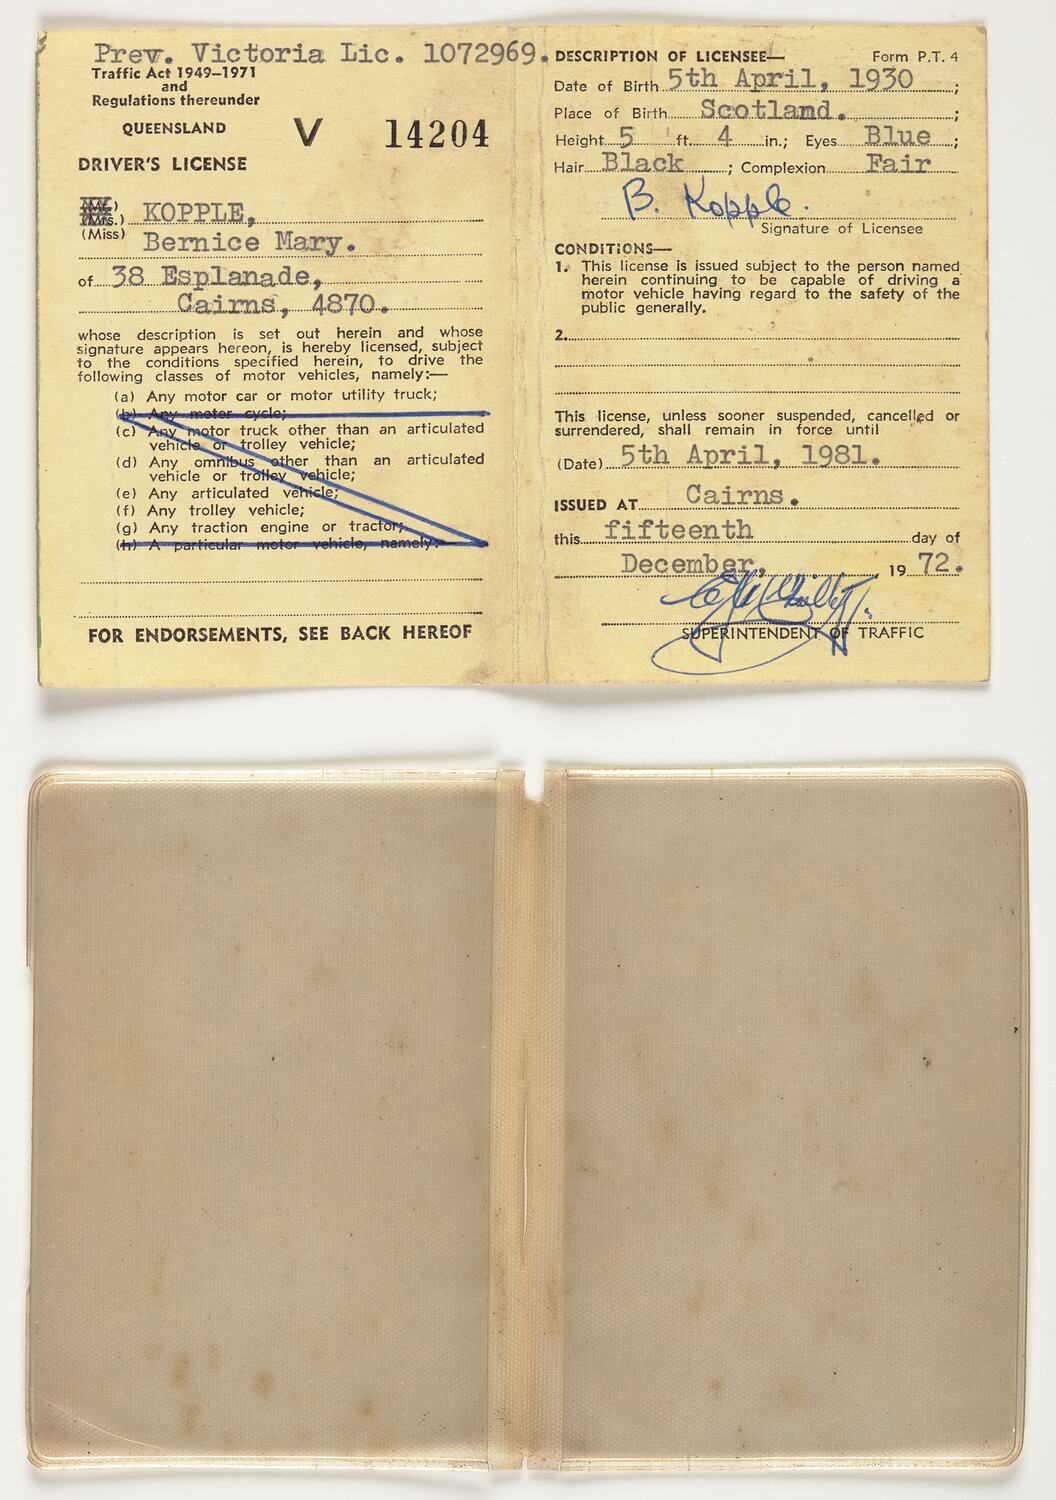 Prev. Victoria Lic. 1072969.
Traffic Act 1949–1971
and
Regulations thereunder
QUEENSLAND V 14204
DRIVER'S LICENSE
(Mr.)
(Mrs.) KOPPLE,
(Miss) Bernice Mary.
of 38 Esplanade,
Cairns, 4870.
whose description is set out herein and whose
signature appears hereon, is hereby licensed, subject
to the conditions specified herein, to drive the
following classes of motor vehicles, namely:—
(a) Any motor car or motor utility truck;
(b) Any motor cycle;
(c) Any motor truck other than an articulated
vehicle or trolley vehicle;
(d) Any omnibus other than an articulated
vehicle or trolley vehicle;
(e) Any articulated vehicle;
(f) Any trolley vehicle;
(g) Any traction engine or tractor;
(h) A particular motor vehicle, namely:—
FOR ENDORSEMENTS, SEE BACK HEREOF
DESCRIPTION OF LICENSEE— Form P.T. 4
Date of Birth 5th April, 1930 ;
Place of Birth Scotland. ;
Height 5 ft. 4 in.; Eyes Blue ;
Hair Black ; Complexion Fair
B. Kopple.
Signature of Licensee
CONDITIONS—
1. This license is issued subject to the person named
herein continuing to be capable of driving a
motor vehicle having regard to the safety of the
public generally.
2.
This license, unless sooner suspended, cancelled or
surrendered, shall remain in force until
(Date) 5th April, 1981.
ISSUED AT Cairns.
this fifteenth day of
December, 19 72.
SUPERINTENDENT OF TRAFFIC